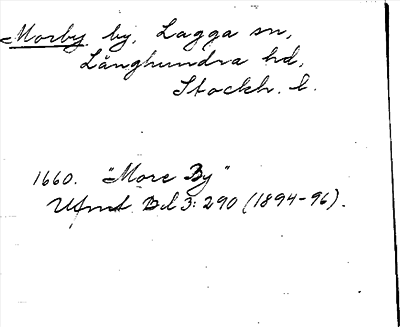 Morby by, Lagga sn,
Långhundra hd,
Stockh. l.
1660. "More By"
Ufmt Bd 3: 290 (1894-96).